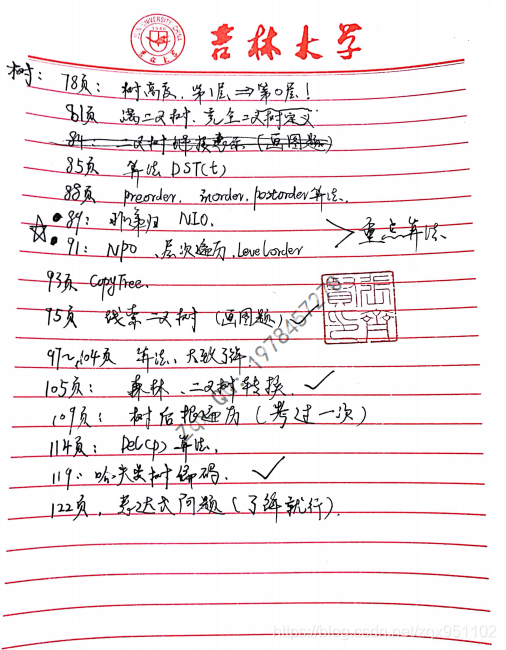 JILIN UNIVERSITY CHINA
1946
吉林大学
树:
78页: 树高度、第1层⇒第0层!
81页 满二叉树、完全二叉树定义
84: 二叉树链接表示(画图题)
85页 算法 DST(t)
88页 preorder、inorder、postorder算法、
☆ • 89: 非递归 NIO、
• 91: NPO、层次遍历、Levelorder
> 重点算法
93页 CopyTree.
95页 线索二叉树(画图题) ✓
97~104页 算法、大致了解
105页: 森林、二叉树转换 ✓
109页: 树后根遍历(考过一次)
114页: Del(p) 算法.
119: 哈夫曼树编码. ✓
122页、表达式问题(了解就行).
https://blog.csdn.net/zqx951102